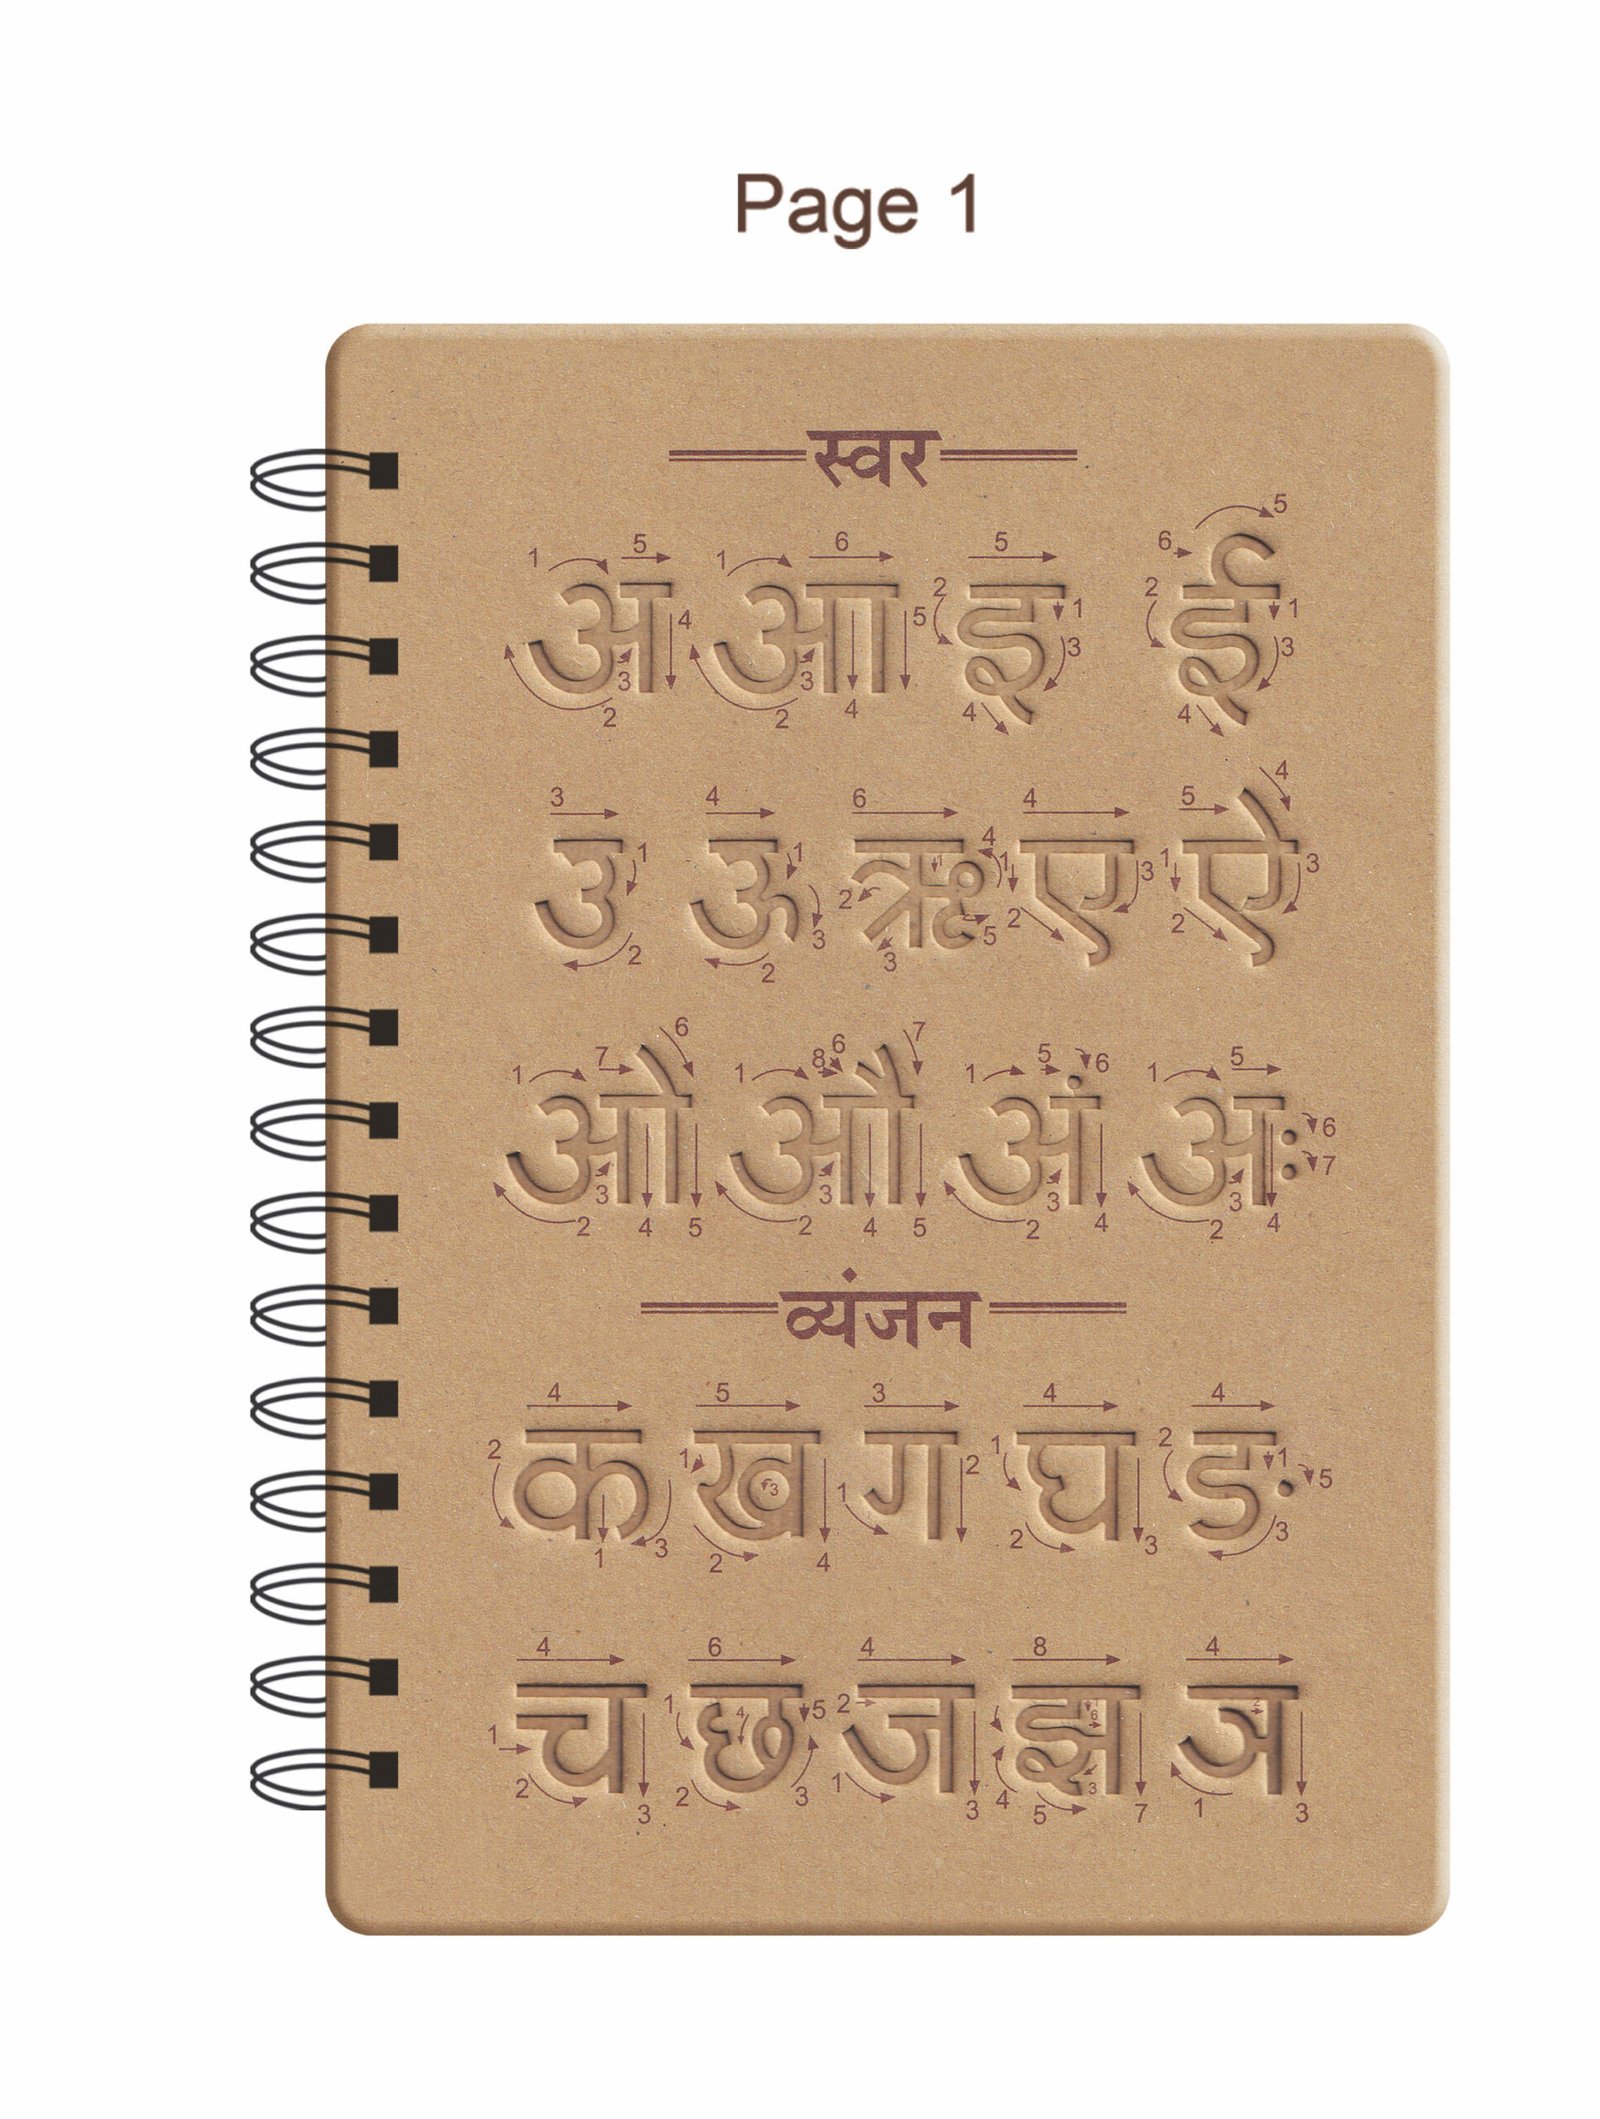 Page 1
स्वर
अ आ इ ई
उ ऊ ऋ ए ऐ
ओ औ अं अः
व्यंजन
क ख ग घ ङ
च छ ज झ ञ